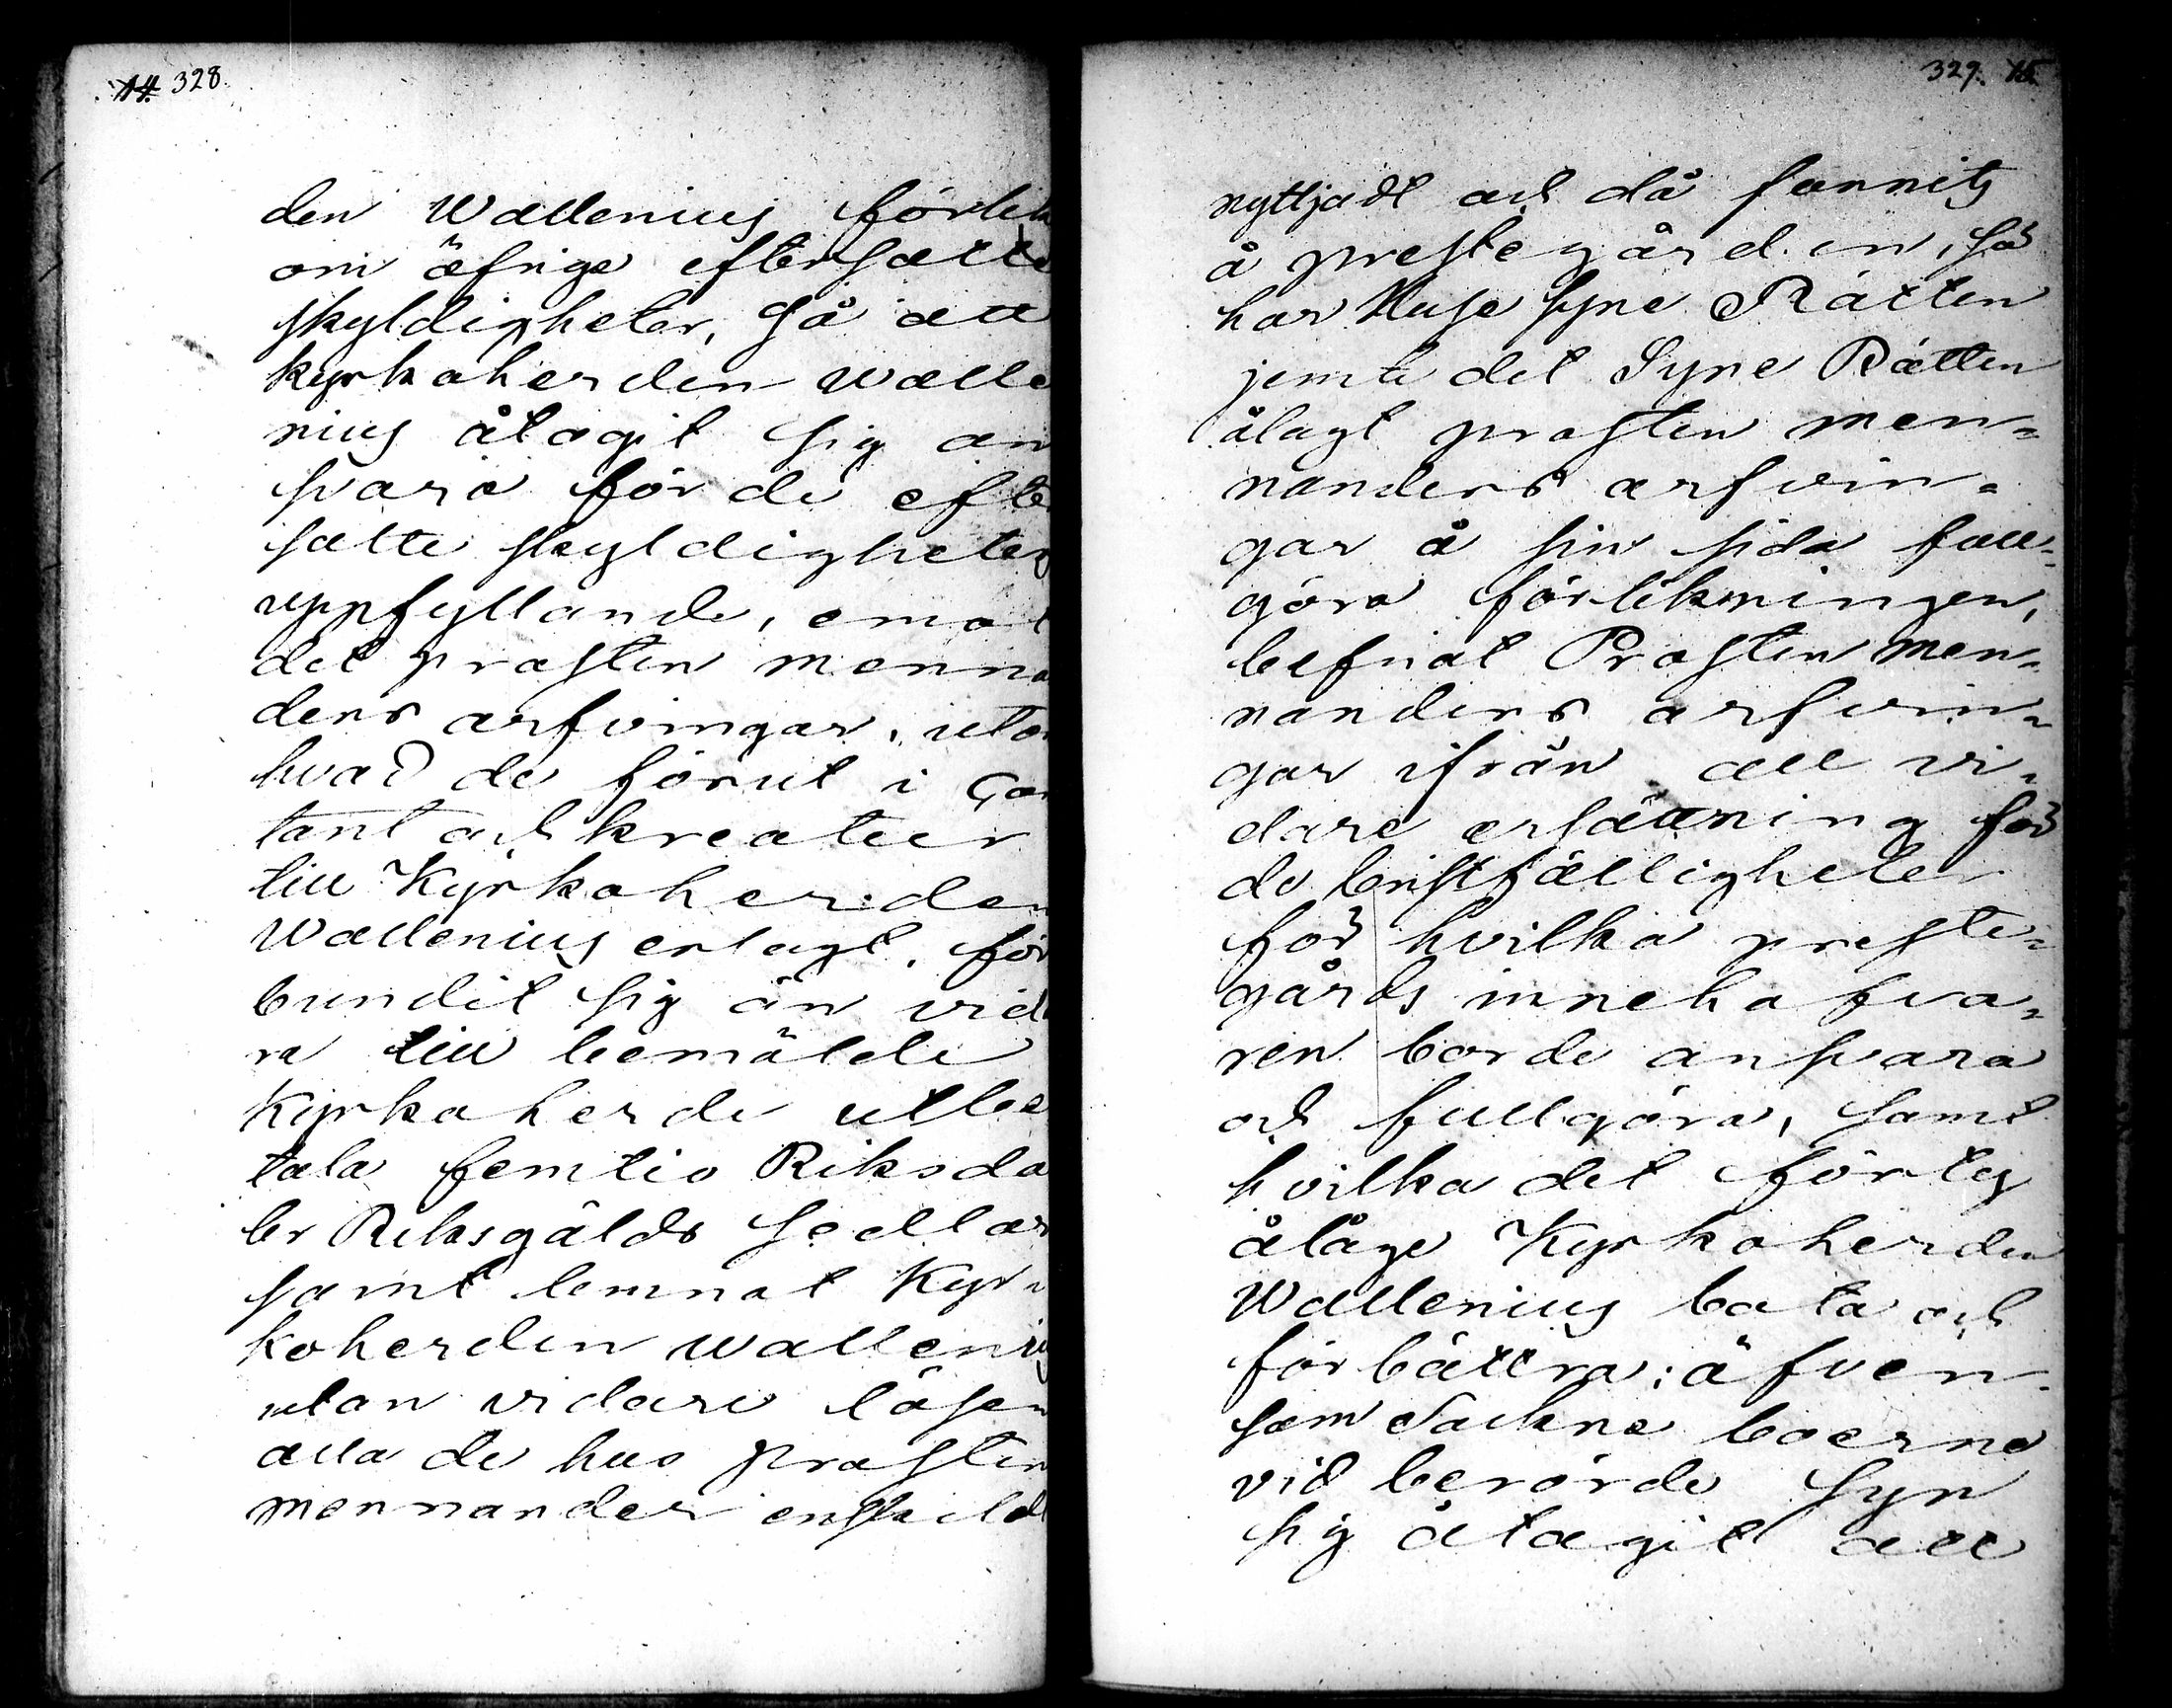 14. 328.
den Wallenius förlik
om öfrige eftersatte
skyldigheter, Så att
kyrkoherden Walle
nius åtagit sig an
svara för de efte
satte skyldigheters
uppfyllande, emot
det prosten Menna
ders arfvingar, utom
hvad de förut i Con
tant och kreatur
till Kyrkoherden
Wallenius erlagt, för
bundit sig än vida
ra till bemälde
Kyrkoherde utbe
tala femtio Riksda
ler Riksgälds Sedlar
samt lemnat Kyr-
koherden Wallenius
utan vidare lösen
alla de hus Prosten
Mennander enskildt
329. 15
nyttjadt och då funnits
å prestegården, så
har Huse Syne Rätten
jemte det Syne Rätten
ålagt prosten Men-
nanders arfvin-
gar å sin sida full-
göra förlikningen,
befriat Prosten Men-
nanders arfvin-
gar ifrån all vi-
dare ersättning för
de bristfälligheter
för hvilka preste-
gårds innehafva-
ren borde ansvara
och fullgöra, samt
hvilka det förty
ålåge Kyrkoherden
Wallenius bota och
förbättra; äfven
som Sockne boerne
vid berörde Syn
sig åtagit att